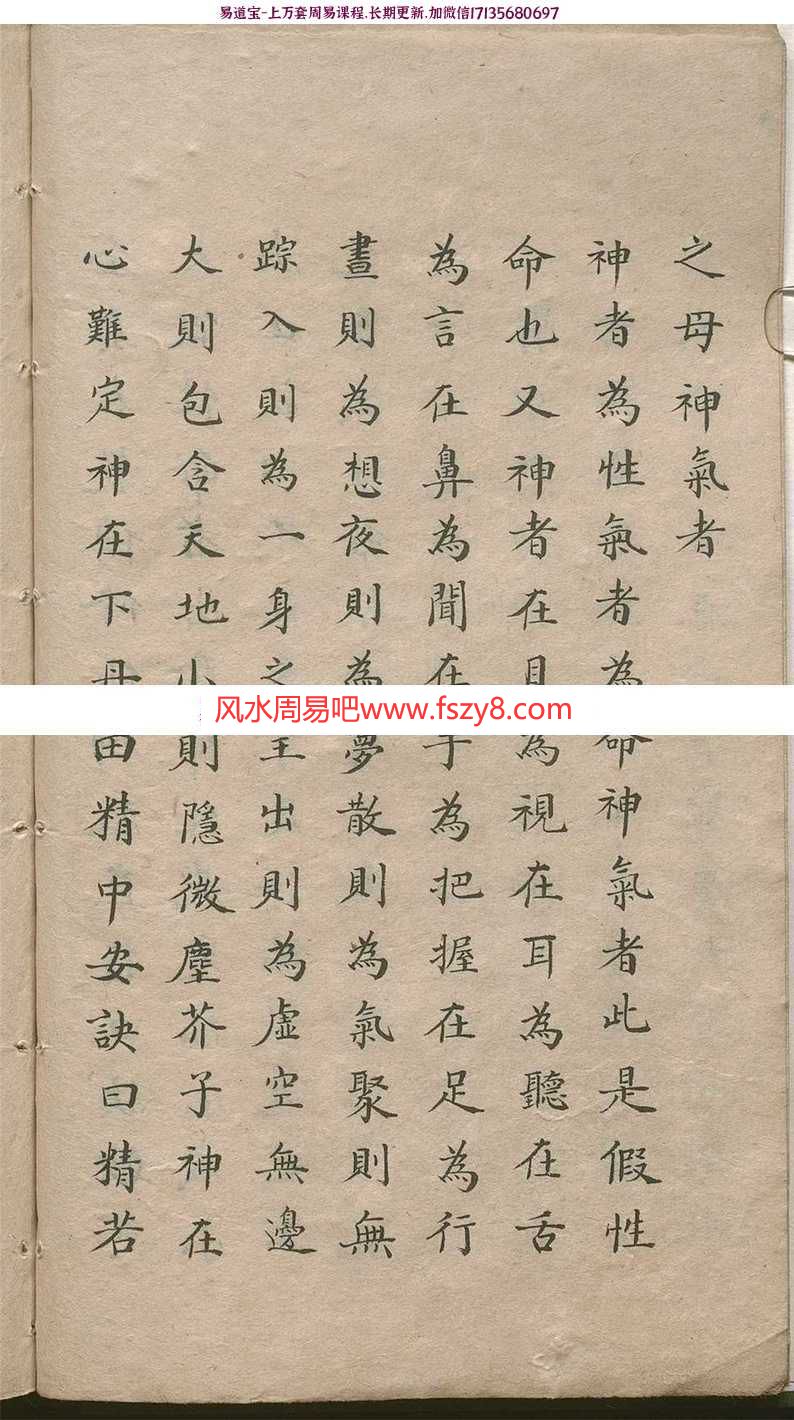 易道宝-上万套周易课程.长期更新.加微信17135680697
之母神氣者
神者為性氣者為命神氣者此是假性
命也又神者在目為視在耳為聽在舌
為言在鼻為聞在手為把握在足為行
晝則為想夜則為夢散則為氣聚則無
踪入則為一身之主出則為虛空無邊
大則包含天地小則隱微塵芥子神在
心難定神在下丹田精中安訣曰精若
风水周易吧www.fszy8.com